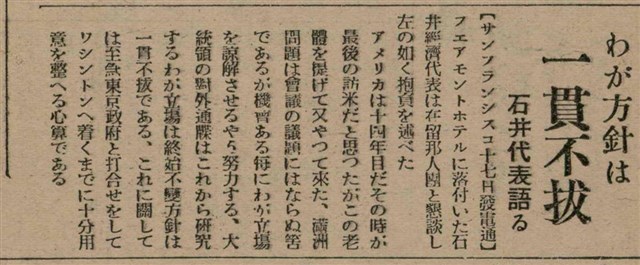 わが方針は
一貫不拔
石井代表語る
【サンフランシスコ十七日發電通】
フエアモントホテルに落付いた石
井經濟代表は在留邦人團と懇談し
左の如く抱負を述べた
アメリカは十四年目だその時が
最後の訪米だと思つたがこの老
體を提げて又やつて來た、滿洲
問題は會議の議題にはならぬ筈
であるが機會ある每にわが立場
を諒解させるやう努力する、大
統領の對外通牒はこれから硏究
するわが立場は終始不變方針は
一貫不拔である、これに關して
は至急東京政府と打合せをして
ワシントンへ着くまでに十分用
意を整へる心算である